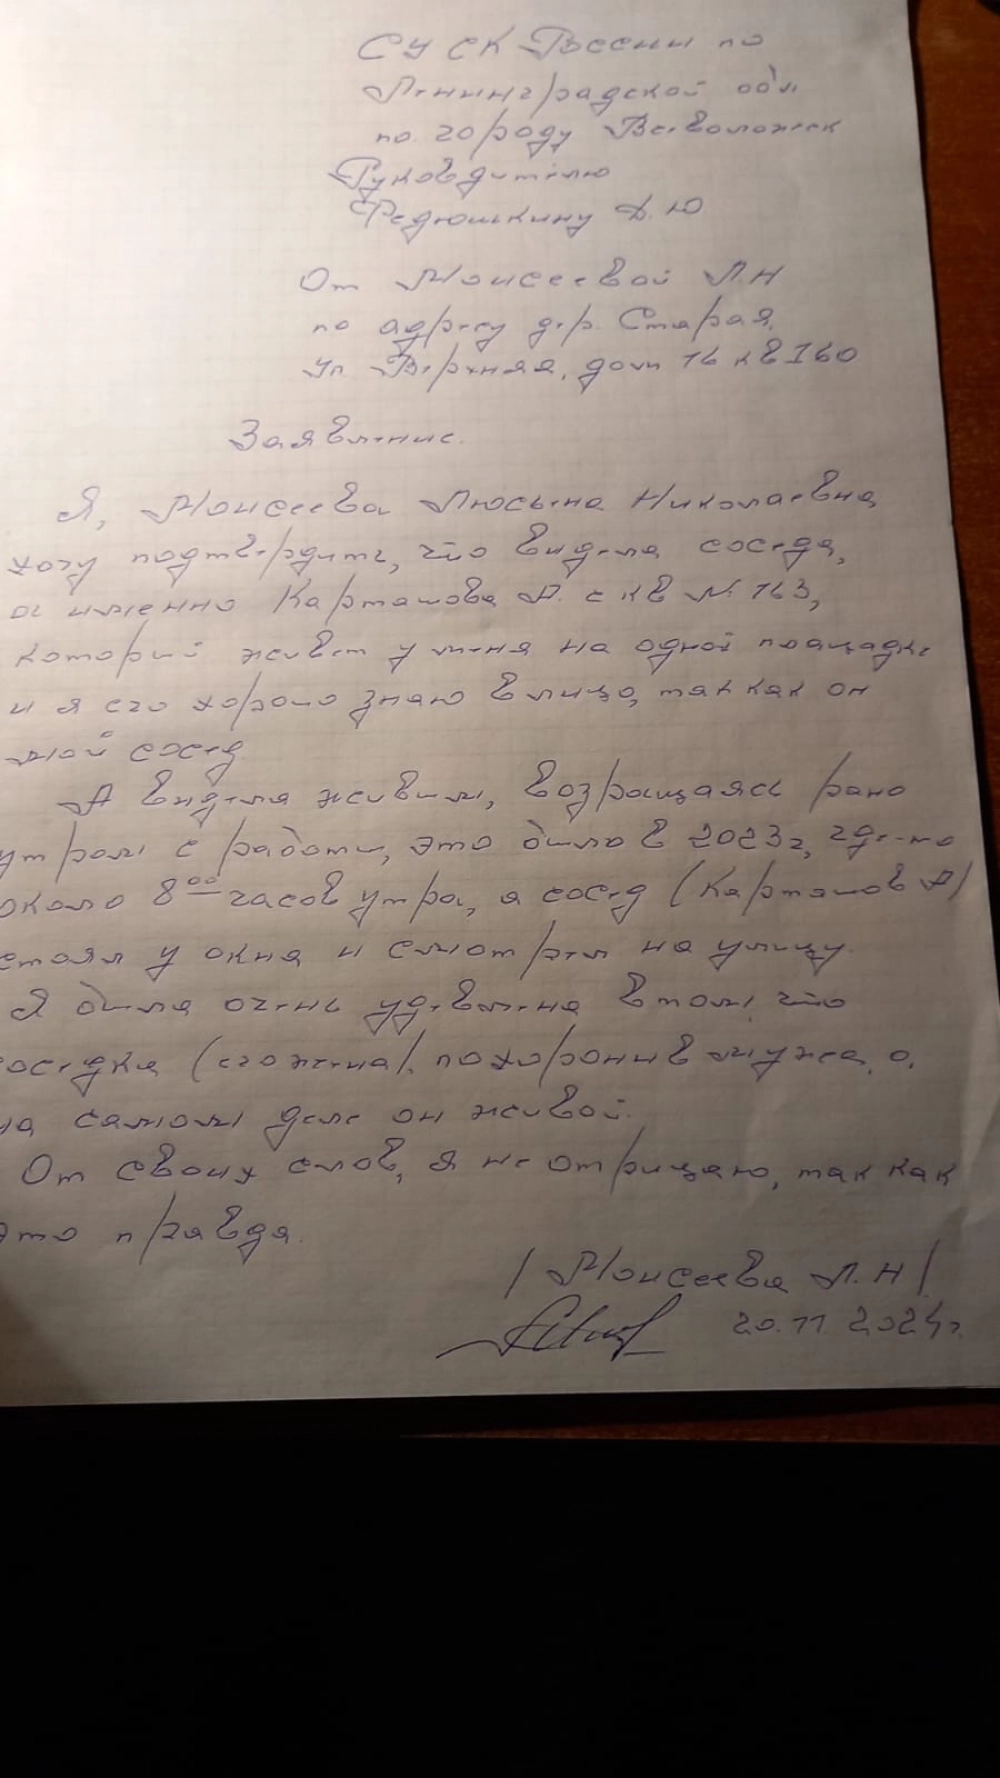 СУ СК России по
Ленинградской обл.
по городу Всеволожск
Руководителю
Федюшкину Д.Ю
От Моисеевой Л.Н
по адресу дер. Старая,
ул Верхняя, дом 16 кв 160
Заявление.
Я, Моисеева Люсьена Николаевна,
хочу подтвердить, что видела соседа,
а именно Карташова А. с кв № 163,
который живет у меня на одной площадке
и я его хорошо знаю в лицо, так как он
мой сосед
А видела живым, возращаясь рано
утром с работы, это было в 2023г, где-то
около 8 00 часов утра, а сосед (Карташов А)
стоял у окна и смотрел на улицу.
Я была очень удевлена в том, что
соседка (его жена), похоронив мужа, а,
на самом деле он живой.
От своих слов, я не отрицаю, так как
это правда.
/ Моисеева Л.Н /
20.11 2024г.